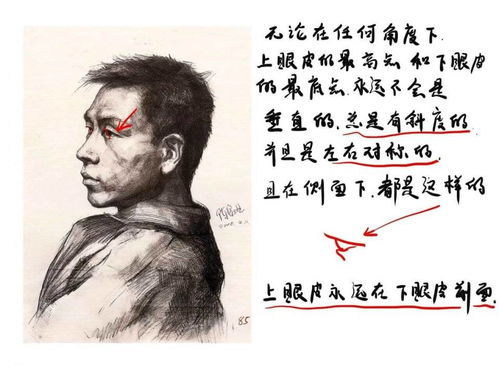 无论在任何角度下.
上眼皮的最高点 和下眼皮
的最底点.永远不会是
垂直的.总是有斜度的.
并且是左右对称的.
且在侧面下.都是这样的
上眼皮永远在下眼皮前面.
85